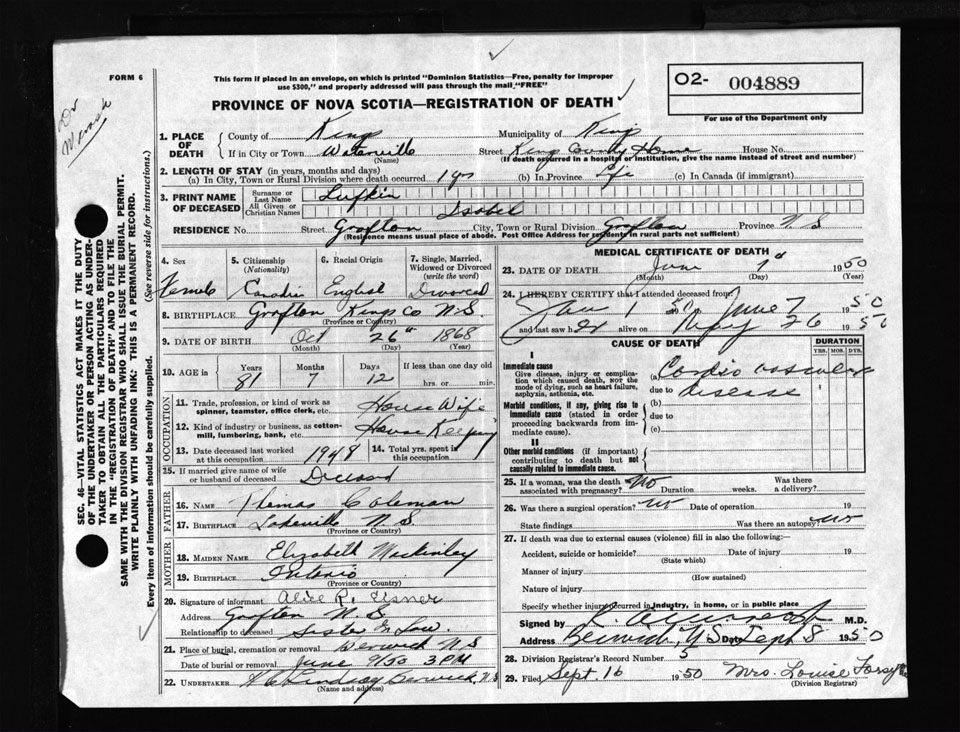 FORM 6
Dr
This form if placed in an envelope, on which is printed "Dominion Statistics—Free, penalty for improper
use $300," and properly addressed will pass through the mail "FREE"
PROVINCE OF NOVA SCOTIA—REGISTRATION OF DEATH
O2- 004889
For use of the Department only
SEC. 46—VITAL STATISTICS ACT MAKES IT THE DUTY
OF THE UNDERTAKER OR PERSON ACTING AS UNDER-
TAKER TO OBTAIN ALL THE PARTICULARS REQUIRED
IN THE "REGISTRATION OF DEATH" AND TO FILE THE
SAME WITH THE DIVISION REGISTRAR WHO SHALL ISSUE THE BURIAL PERMIT.
WRITE PLAINLY WITH UNFADING INK: THIS IS A PERMANENT RECORD.
Every item of information should be carefully supplied. (See reverse side for instructions.)
1. PLACE OF DEATH County of Kings Municipality of Kings
If in City or Town Waterville Street Kings County Home House No.
(Name) (If death occurred in a hospital or institution, give the name instead of street and number)
2. LENGTH OF STAY (in years, months and days)
(a) In City, Town or Rural Division where death occurred 1 yrs (b) In Province Life (c) In Canada (if immigrant)
3. PRINT NAME OF DECEASED Surname or Last Name Lufkin
All Given or Christian Names Isobel
RESIDENCE No. Street Grafton City, Town or Rural Division Grafton Province N.S.
(Residence means usual place of abode. Post Office Address for residents in rural parts not sufficient)
4. Sex 5. Citizenship (Nationality) 6. Racial Origin 7. Single, Married, Widowed or Divorced (write the word)
Female Canadian English Divorced
8. BIRTHPLACE Grafton Kings Co N.S.
(Province or Country)
9. DATE OF BIRTH Oct 26 1868
(Month) (Day) (Year)
10. AGE IN Years Months Days If less than one day old
81 7 12 hrs. or min.
OCCUPATION
11. Trade, profession, or kind of work as
spinner, teamster, office clerk, etc. House Wife
12. Kind of industry or business, as cotton-
mill, lumbering, bank, etc. House Keeping
13. Date deceased last worked
at this occupation 1948 14. Total yrs. spent in
this occupation
15. If married give name of wife
or husband of deceased Divorced
FATHER
16. NAME Thomas Coleman
17. BIRTHPLACE Lakeville N.S.
(Province or Country)
MOTHER
18. MAIDEN NAME Elizabeth Mackinley
19. BIRTHPLACE Ontario
(Province or Country)
20. Signature of informant Alice R. Eisner
Address Grafton N.S.
Relationship to deceased Sister In Law
21. Place of burial, cremation or removal Berwick N.S
Date of burial or removal June 9/50 3 PM
22. UNDERTAKER Lindsay Berwick N.S
(Name and address)
MEDICAL CERTIFICATE OF DEATH
23. DATE OF DEATH June 7 1950
(Month) (Day) (Year)
24. I HEREBY CERTIFY that I attended deceased from
Jan 1 50 to June 7 1950
and last saw her alive on May 26 1950
CAUSE OF DEATH DURATION
YRS. MOS. DYS.
I
Immediate cause
Give disease, injury or complica-
tion which caused death, NOT the
mode of dying, such as heart failure,
asphyxia, asthenia, etc.
(a) Cardio vascular
due to disease
Morbid conditions, if any, giving rise to
immediate cause (stated in order
proceeding backwards from im-
mediate cause).
(b)
due to
(c)
II
Other morbid conditions (if important)
contributing to death but not
causally related to immediate cause.
25. If a woman, was the death
associated with pregnancy? No Duration weeks. Was there
a delivery?
26. Was there a surgical operation? No Date of operation 19
State findings Was there an autopsy? No
27. If death was due to external causes (violence) fill in also the following:—
Accident, suicide or homicide? Date of injury 19
(State which)
Manner of injury
(How sustained)
Nature of injury
Specify whether injury occurred in industry, in home, or in public place
Signed by M.D.
Address Berwick N.S. Date Sept 8 1950
28. Division Registrar's Record Number 5
29. Filed Sept 16 1950 Mrs. Louise Forsythe
(Division Registrar)